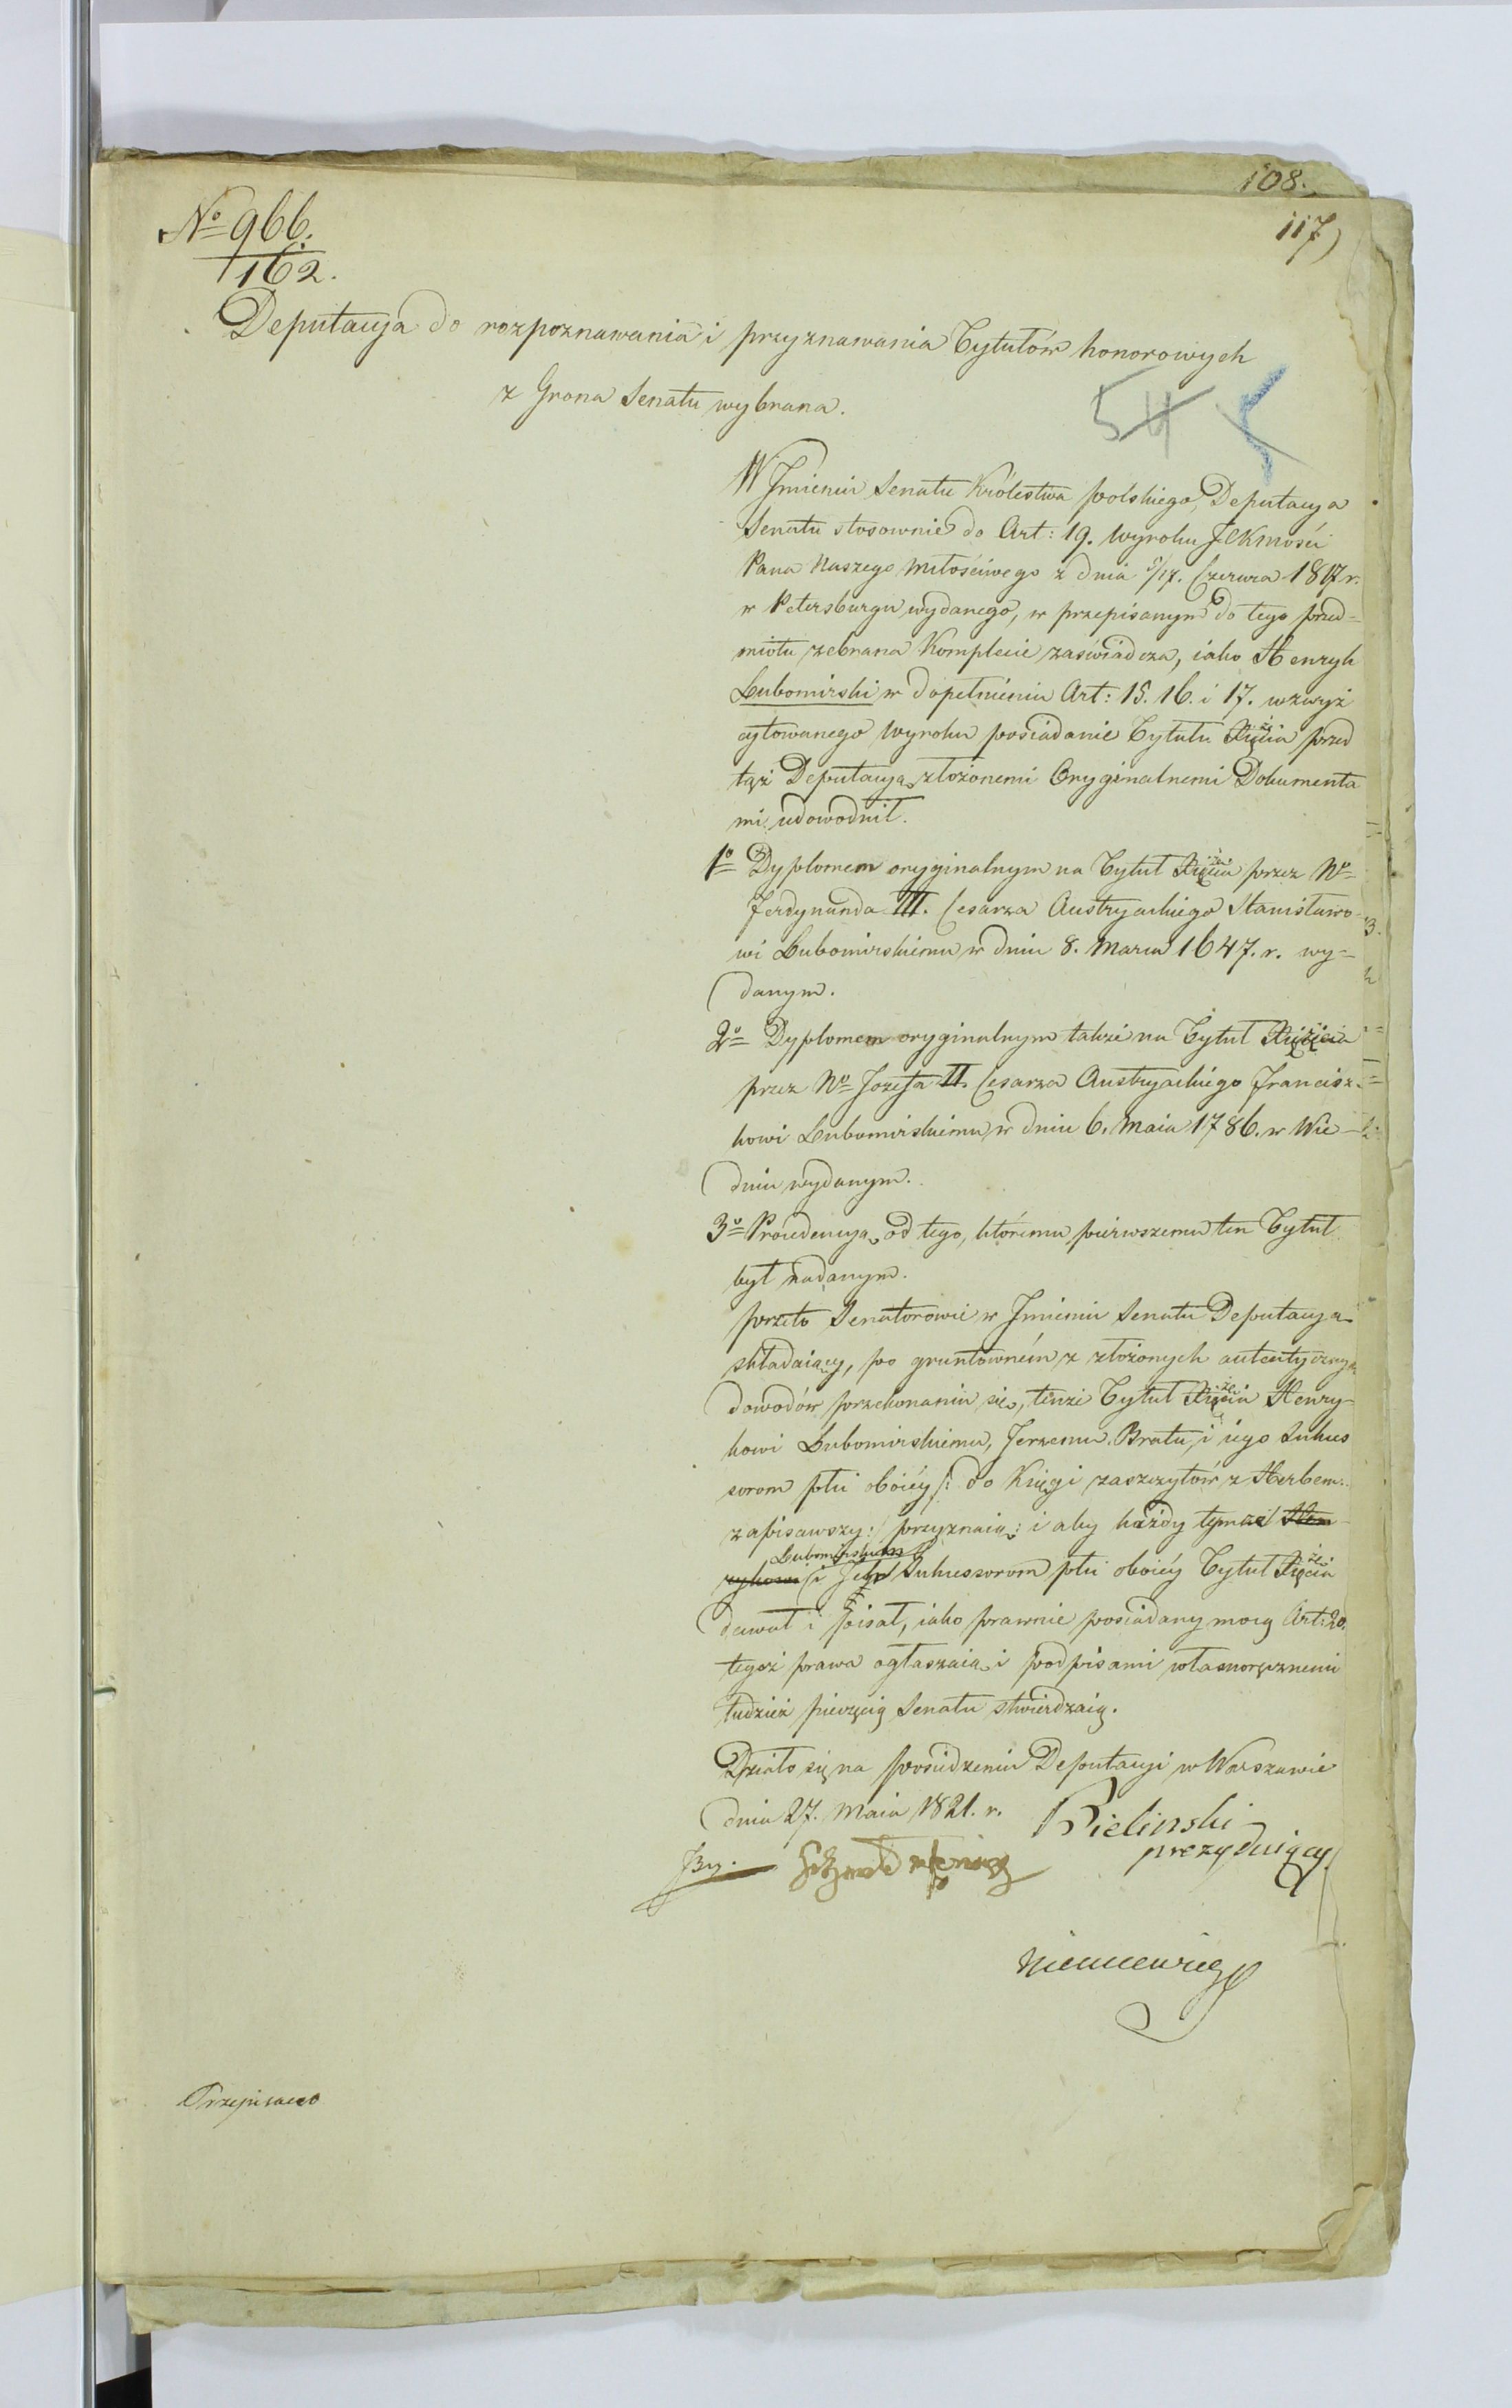 108.
117)
No 966.
162.
Deputacya do rozpoznawania i przyznawania Tytułów honorowych
z Grona Senatu wybrana.
54
W Jmieniu Senatu Królestwa polskiego, Deputacya
Senatu stosownie do Art: 19. Wyroku JCKMości
Pana Naszego Miłościwego z dnia 5/17. Czerwca 1817 r.
w Petersburgu wydanego, w przepisanym do tego przed=
miotu zebrana Komplecie zaświadcza, iako Henryk
Lubomirski w dopełnieniu Art: 15. 16. i 17. wzwyż
cytowanego Wyroku posiadanie Tytułu Xięcia przed
tąż Deputacyą złożonemi Oryginalnemi Dokumenta
mi udowodnił.
1o Dyplomem oryginalnym na Tytuł Xięcia przez No
Ferdynanda III. Cesarza Austryackiego Stanisławo
wi Lubomirskiemu w dniu 8. Marca 1647. r. wy=
danym.
2o Dyplomem oryginalnym także na Tytuł Xiężęcia
przez No Jozefa II. Cesarza Austryackiego Francisz=
kowi Lubomirskiemu w dniu 6. Maia 1786. w Wie=
dniu wydanym.
3o Procedencyą od tego, któremu pierwszemu ten Tytuł
był nadanym.
przeto Senatorowie w Jmieniu Senatu Deputacyą
składaiący, po gruntowném z złożonych autentycznych
dowodów przekonaniu się, tenże Tytuł Xięcia Henry=
kowi Lubomirskiemu, Jerzemu Bratu, i iego Sukces
sorom płci oboiéy /: do Księgi zaszczytów z Herbem
zapisawszy :/ przyznaią: i aby każdy tymże Hen
rykowi
Lubomirskim
i Jch Sukcessorom płci oboiéy Tytuł Xięcia
dawał i pisał, iako prawnie posiadany mocą Art: 20.
tegoż prawa ogłaszaią i podpisami własnoręcznemi
tudzież pieczęcią Senatu stwierdzaią.
Działo się na posiedzeniu Deputacyi w Warszawie
dnia 27. Maia 1821. r.
Bielinski
prezyduiący
Niemcewicz
Przepisano